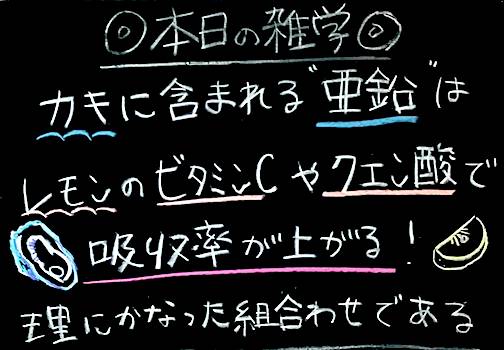 ◎本日の雑学◎
カキに含まれる"亜鉛"は
レモンのビタミンCやクエン酸で
吸収率が上がる!
理にかなった組合わせである